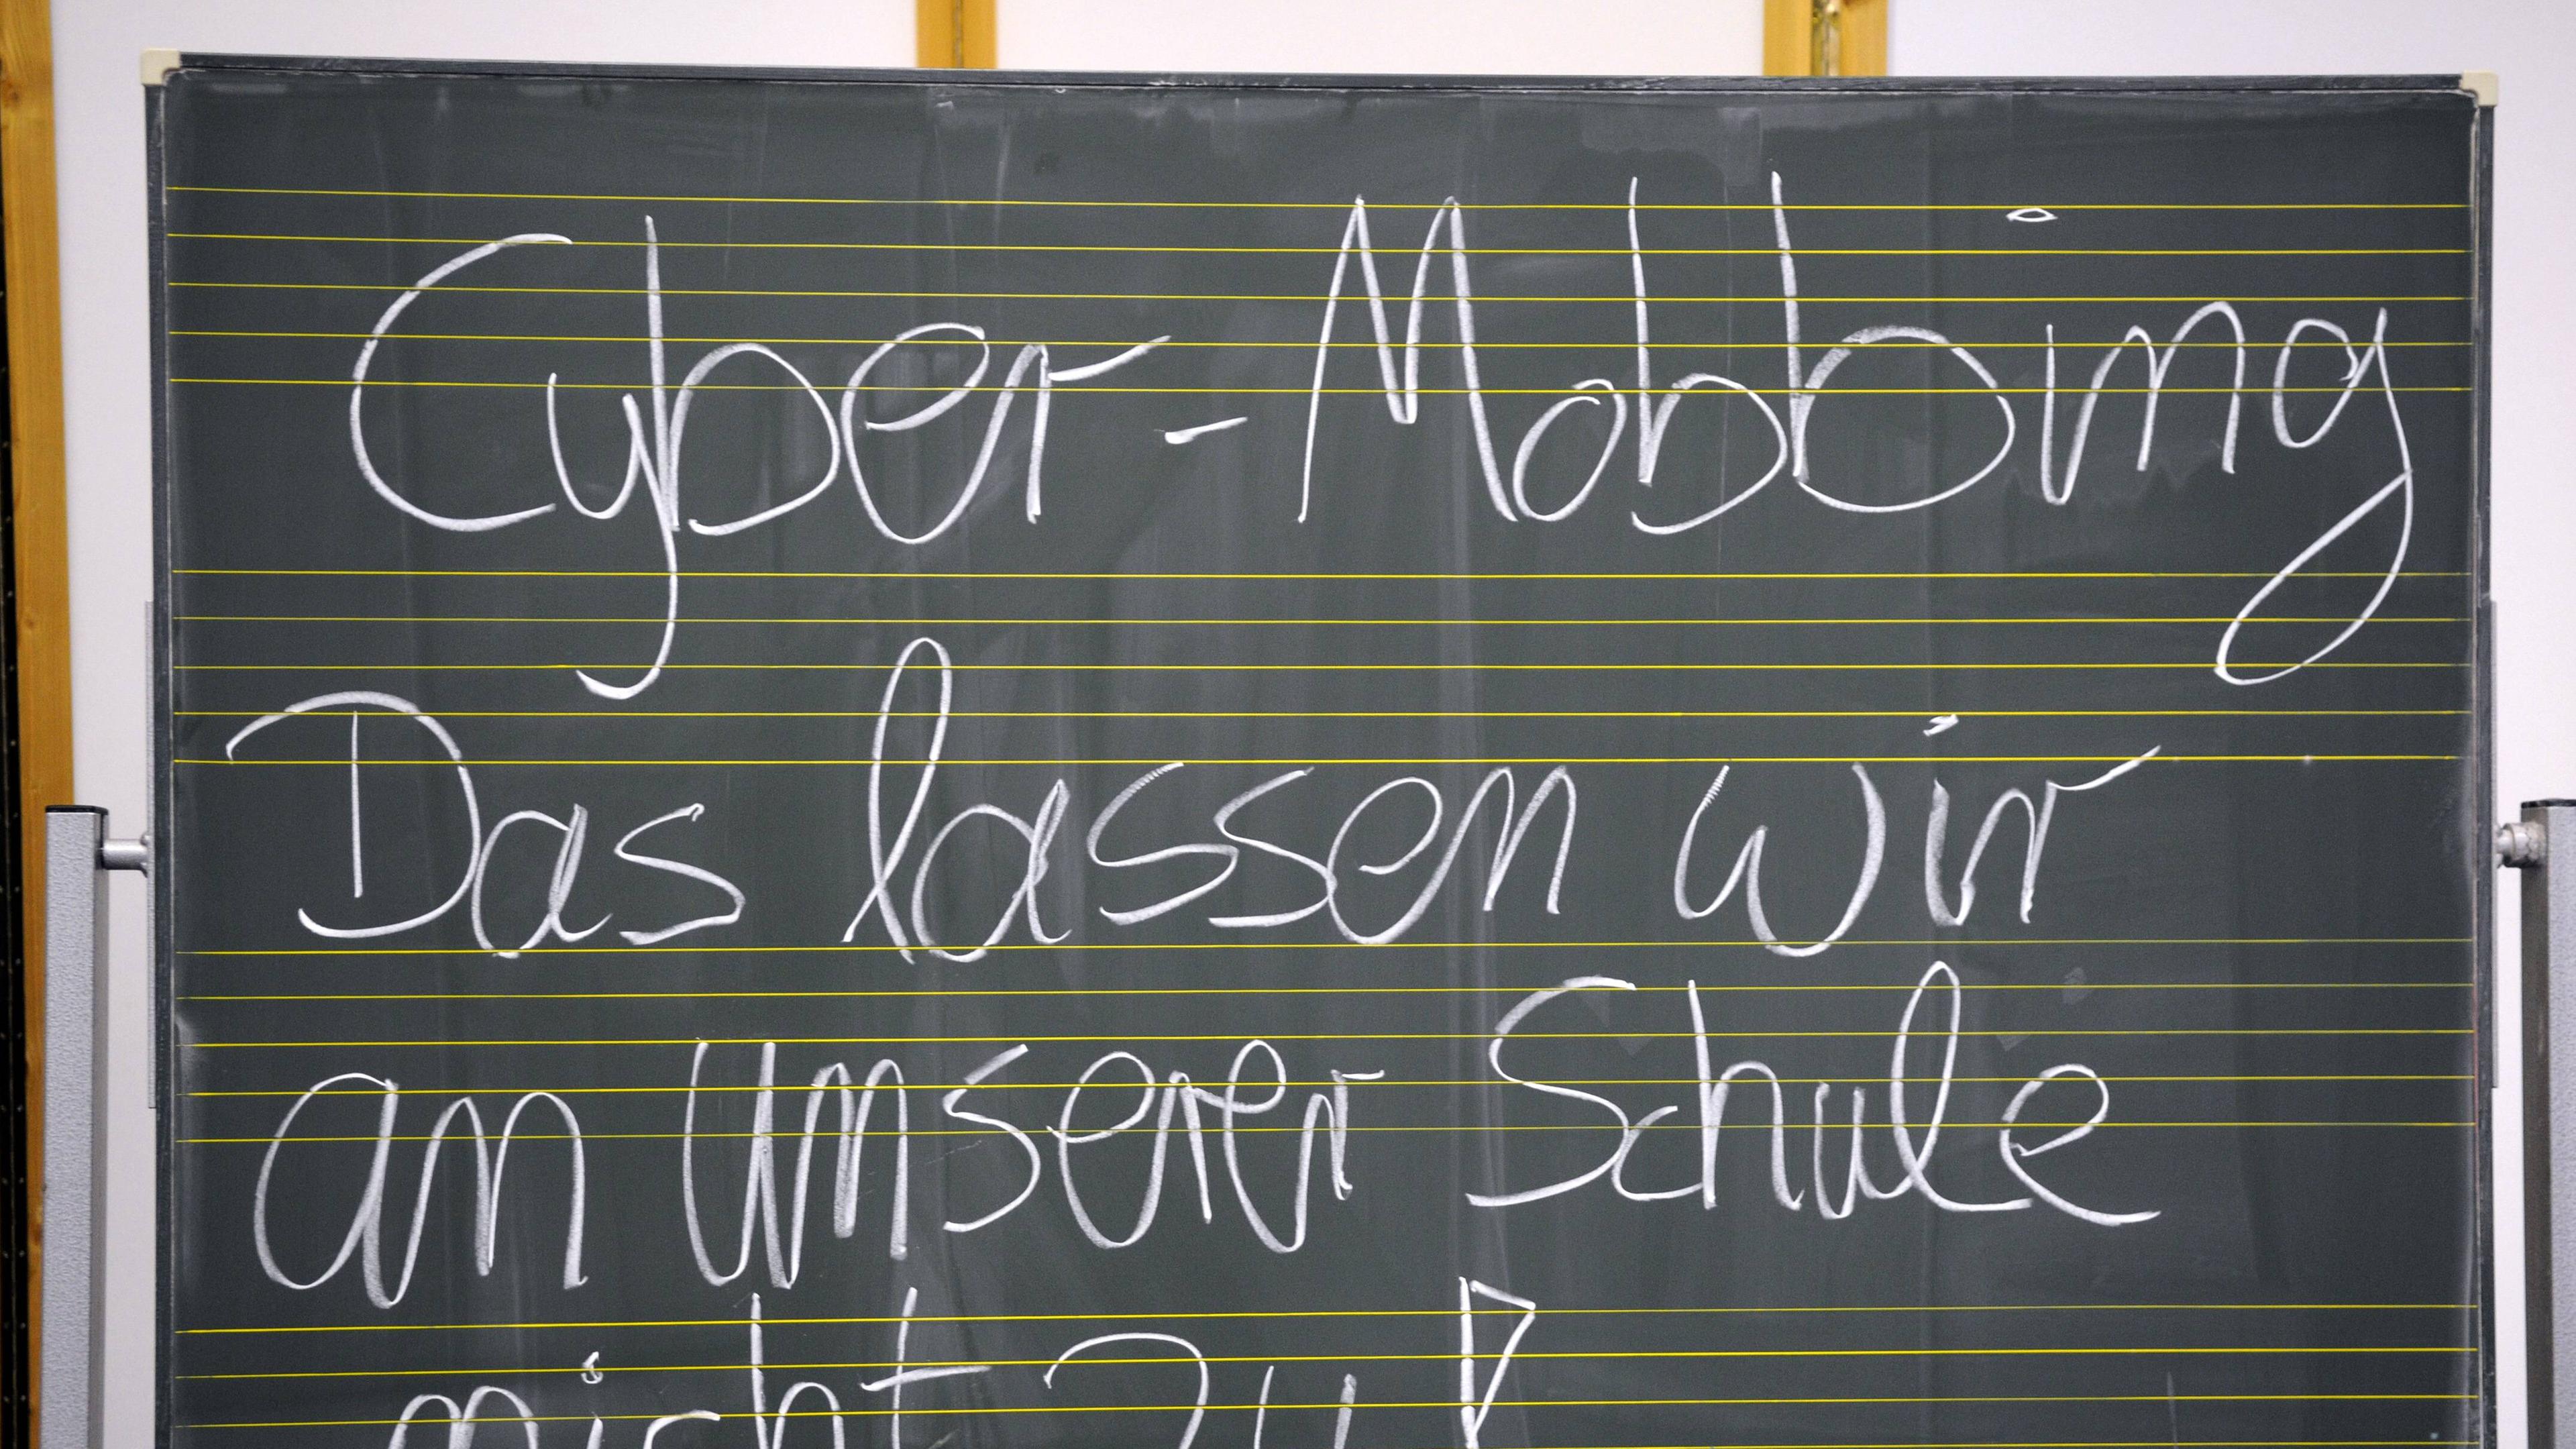 Cyber-Mobbing
Das lassen wir
an unserer Schule
nicht zu!